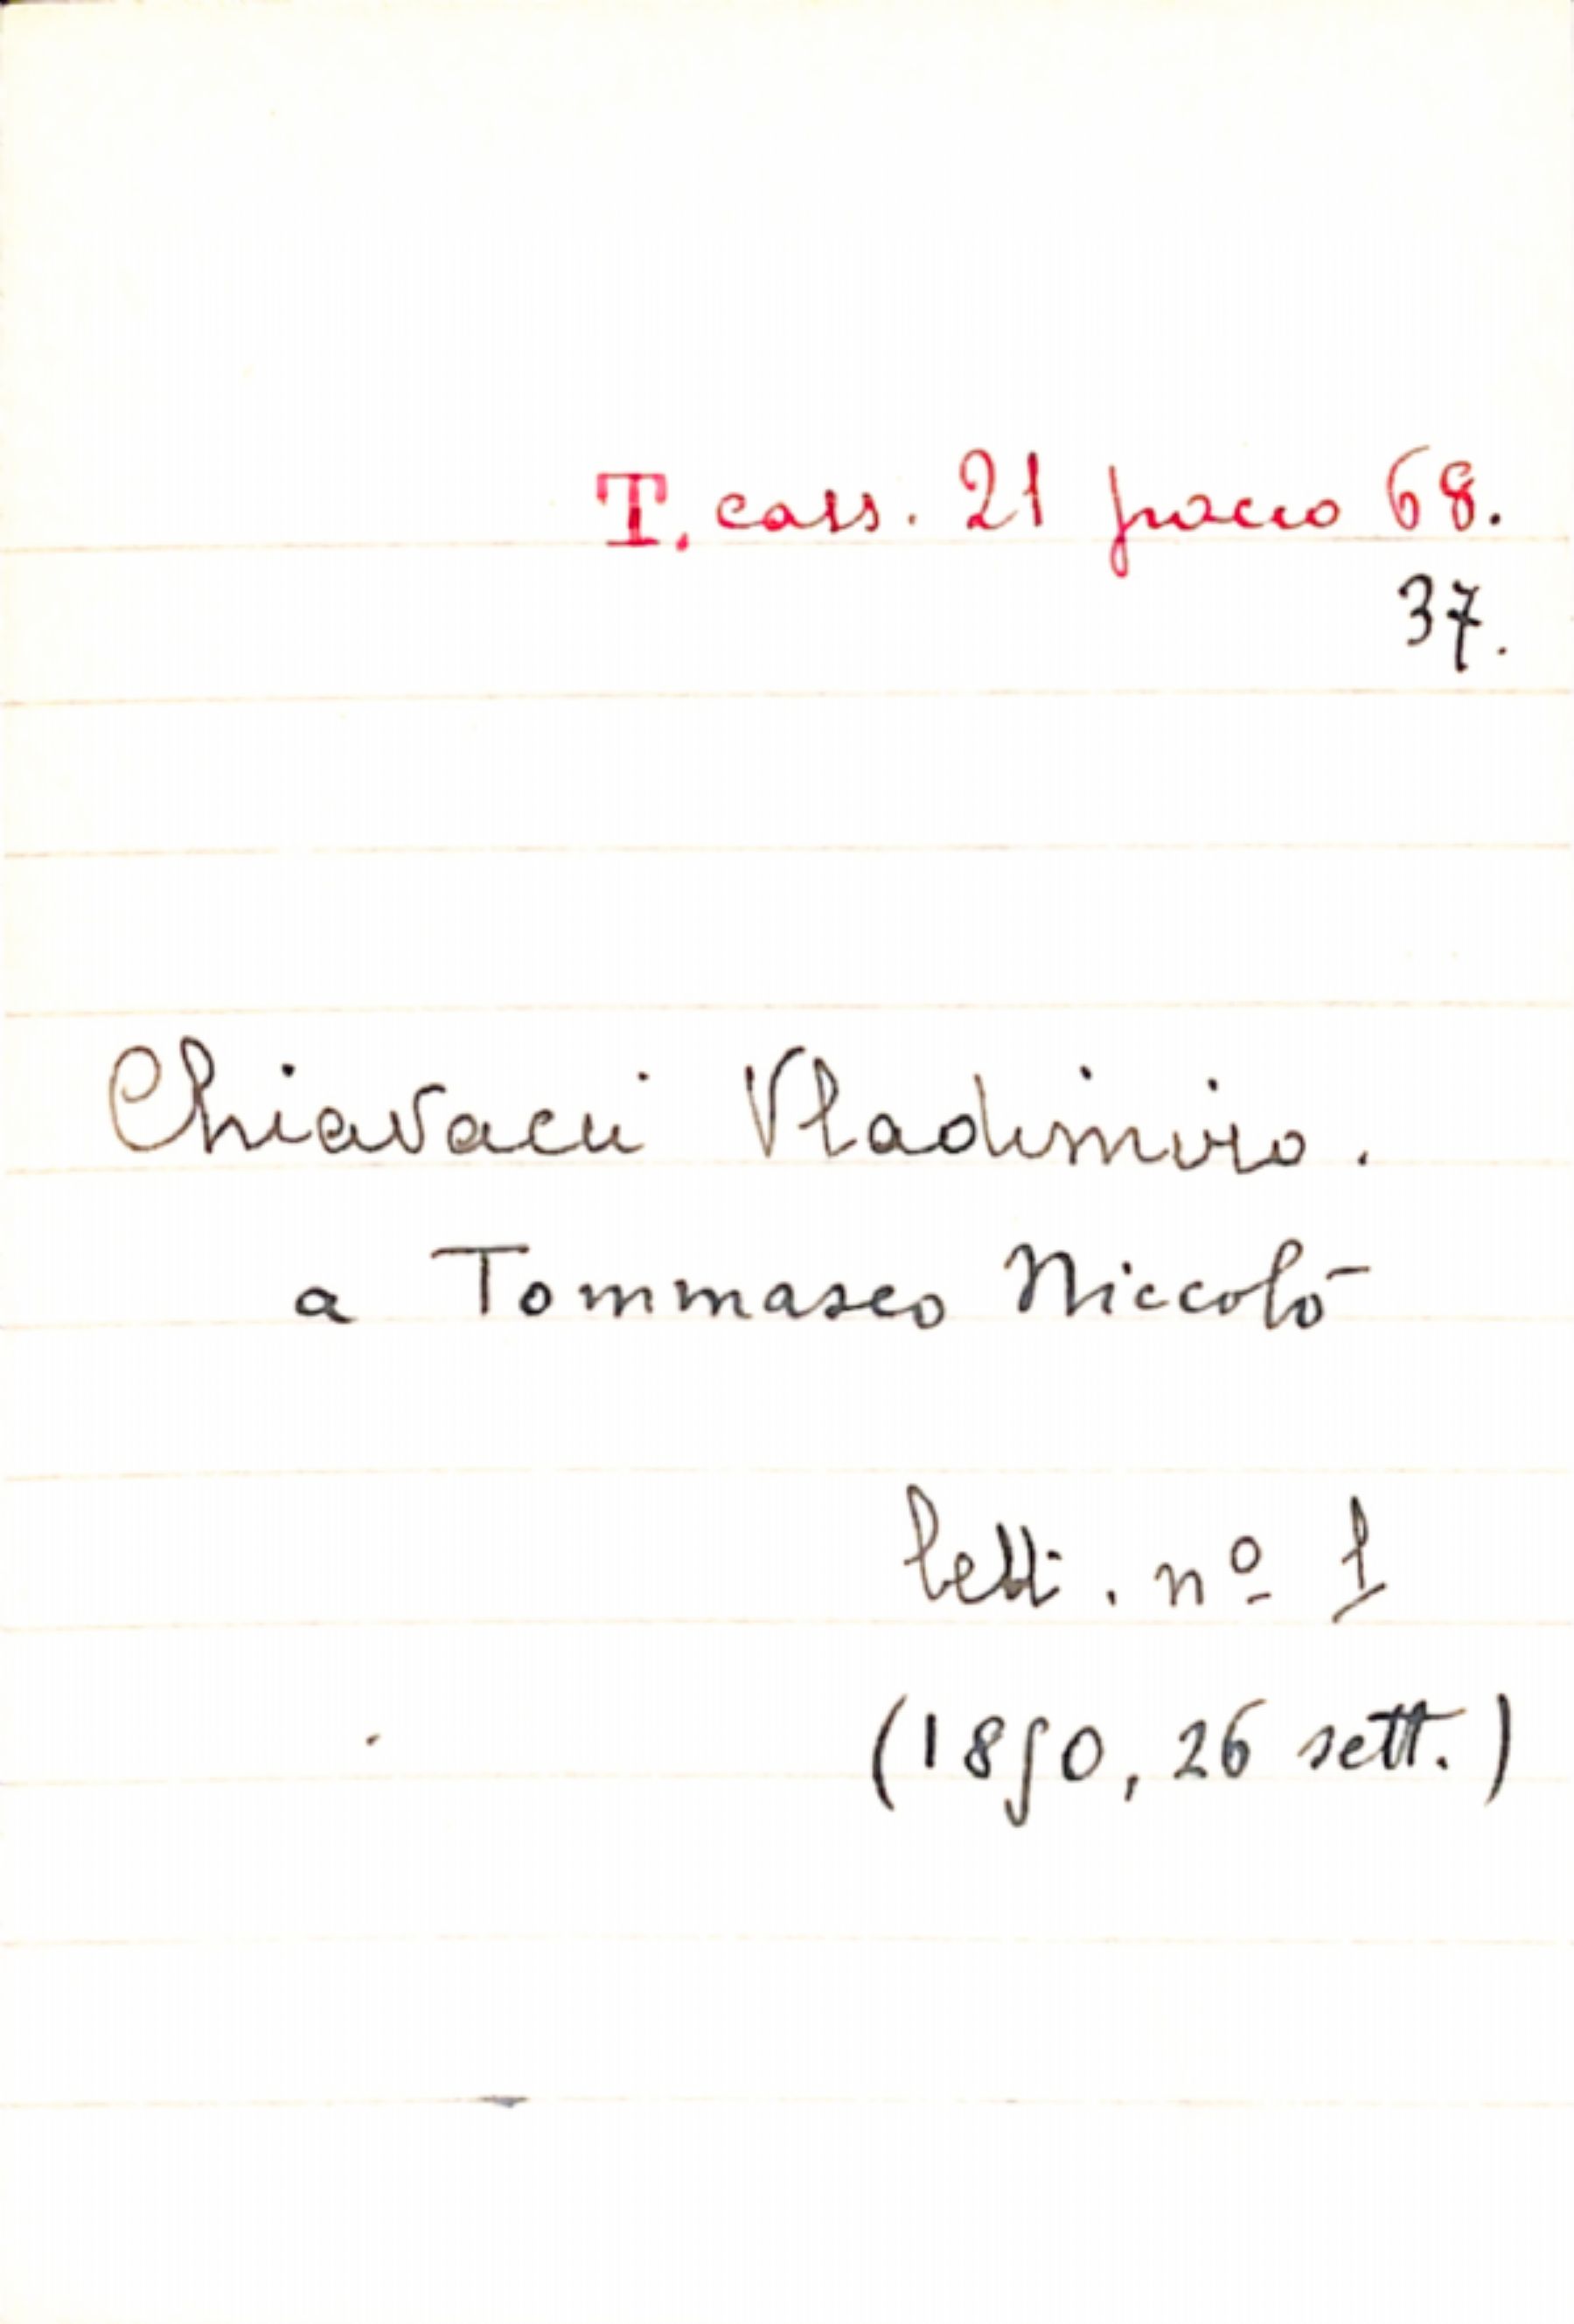 T. cass. 21 pacco 68.
37.
Chiavacci Vladimiro.
a Tommaseo Niccolò
lett. nº 1
(1850, 26 sett.)